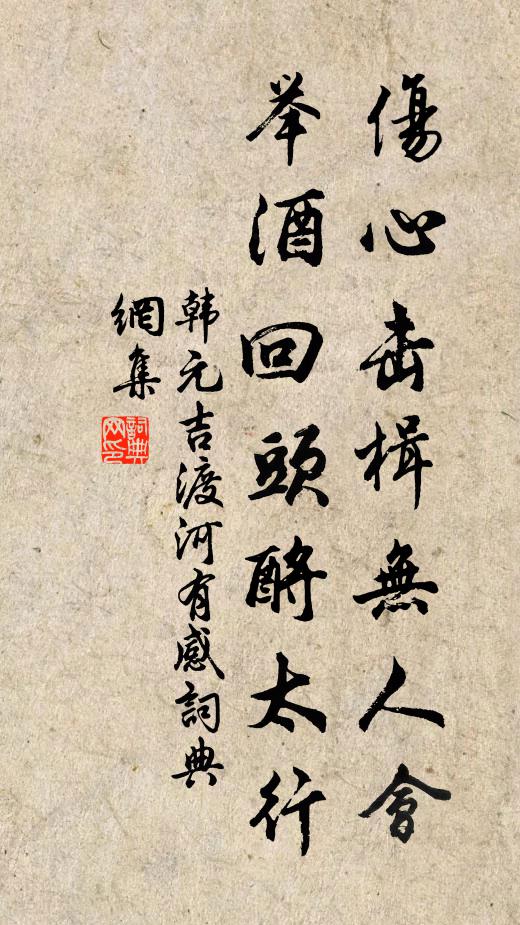 傷心击楫無人會
举酒回頭酹太行
韩元吉渡河有感詞典
網集
詞典
网印